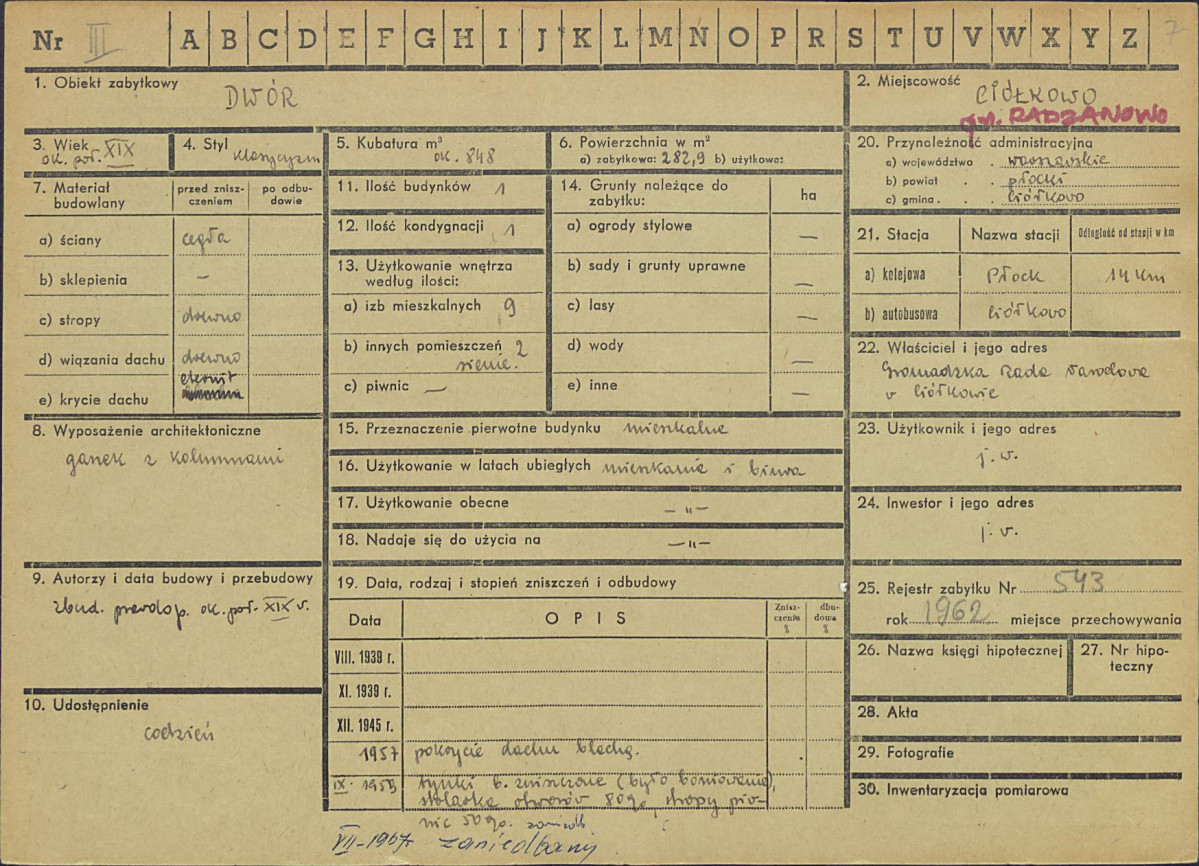 Nr III A B C D E F G H I J K L M N O P R S T U V W X Y Z 7
1. Obiekt zabytkowy
DWÓR
2. Miejscowość
CIÓŁKOWO
gm. RADZANOWO
3. Wiek
ok. poł. XIX
4. Styl
klasycyzm
5. Kubatura m³
ok. 848
6. Powierzchnia w m²
a) zabytkowa: 282,9 b) użytkowa:
20. Przynależność administracyjna
a) województwo . warszawskie
b) powiat . . płocki
c) gmina . . Ciółkowo
7. Materiał budowlany
przed zniszczeniem
po odbudowie
a) ściany cegła
b) sklepienia –
c) stropy drewno
d) wiązania dachu drewno
eternit
e) krycie dachu
11. Ilość budynków 1
12. Ilość kondygnacji 1
13. Użytkowanie wnętrza
według ilości:
a) izb mieszkalnych 9
b) innych pomieszczeń 2
sienie.
c) piwnic –
14. Grunty należące do
zabytku:
ha
a) ogrody stylowe –
b) sady i grunty uprawne –
c) lasy –
d) wody –
e) inne –
21. Stacja Nazwa stacji Odległość od stacji w km
a) kolejowa Płock 14 km
b) autobusowa Ciółkowo
22. Właściciel i jego adres
Gromadzka Rada Narodowa
w Ciółkowie
8. Wyposażenie architektoniczne
ganek z kolumnami
15. Przeznaczenie pierwotne budynku mieszkalne
16. Użytkowanie w latach ubiegłych mieszkania i biura
17. Użytkowanie obecne – " –
18. Nadaje się do użycia na – " –
23. Użytkownik i jego adres
j. w.
24. Inwestor i jego adres
j. w.
9. Autorzy i data budowy i przebudowy
zbud. prawdop. ok. poł. XIX w.
10. Udostępnienie
codzień
19. Data, rodzaj i stopień zniszczeń i odbudowy
Data OPIS Zniszczenia % dbudowa %
VIII. 1939 r.
XI. 1939 r.
XII. 1945 r.
1957 pokrycie dachu blachą.
IX. 1959 tynki b. zniszczone (było boniowanie),
stolarka otworów 80%, stropy piw-
nic 50%.
VII-1967r zaniedbany
25. Rejestr zabytku Nr 543
rok 1962 miejsce przechowywania
26. Nazwa księgi hipotecznej
27. Nr hipoteczny
28. Akta
29. Fotografie
30. Inwentaryzacja pomiarowa